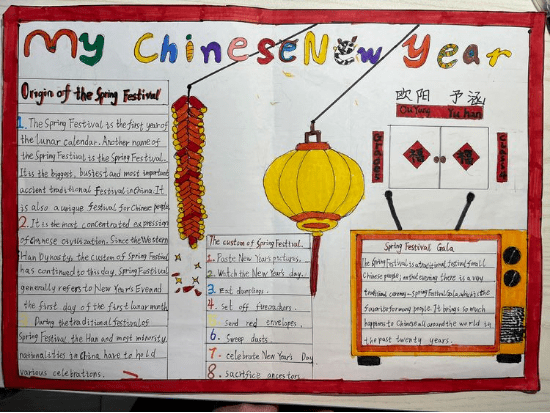 My Chinese New Year
Origin of the Spring Festival
1. The Spring Festival is the first year of
the lunar calendar. Another name of
the Spring Festival is the Spring Festival.
It is the biggest, busiest and most important
ancient traditional festival in China. It
is also a unique festival for Chinese people
2. It is the most concentrated expression
of Chinese civilization. Since the Western
Han Dynasty, the custom of Spring Festival
has continued to this day. Spring Festival
generally refers to New Year's Eve and
the first day of the first lunar month
During the traditional festival of
Spring Festival the Han and most minority
nationalities in China have to hold
various celebrations.
The custom of Spring Festival.
1. Paste New Year's pictures.
2. Watch the New Year's day.
3. Eat dumplings.
4. Set off firecrackers.
Send red envelopes.
6. Sweep dusts
7. celebrate New Year's Day
8. sacrifice ancestors
欧阳 予涵
Ou Yang Yu Han
福
福
Spring Festival Gala
The Spring Festival is a traditional festival of all
Chinese people, on that evening there is a very
traditional ceremony-Spring Festival Gala, which is the
favorite for many people. It brings so much
happiness to Chinese all around the world in
the past twenty years.